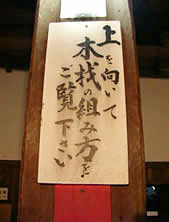 上を向いて
木材の組み方を
ご覧下さい